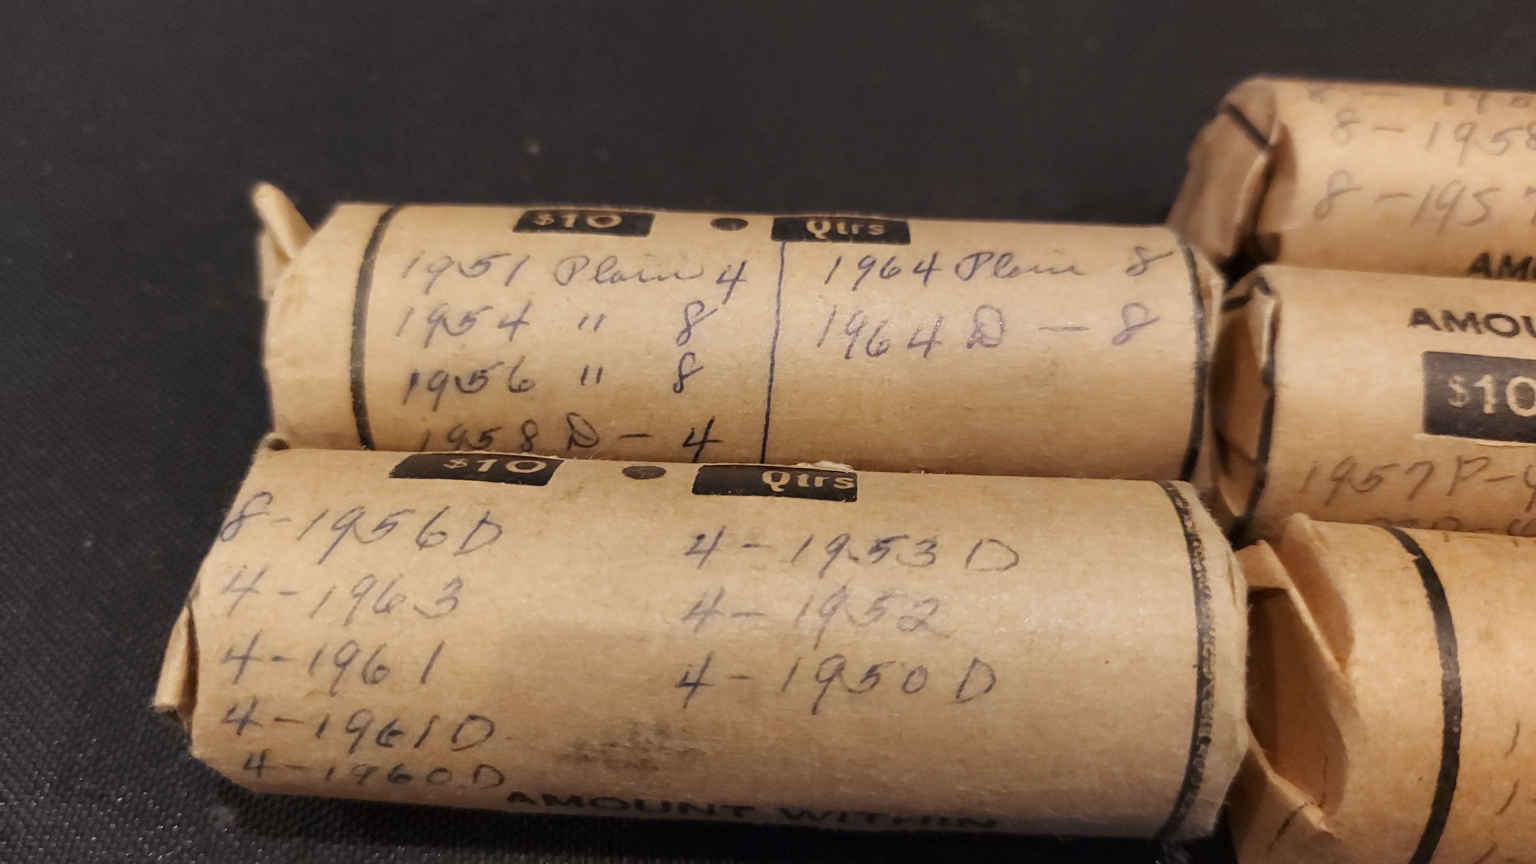 $10 Qtrs
1951 Plain 4
1954 " 8
1956 " 8
1958 D - 4
1964 Plain 8
1964 D - 8
$10 Qtrs
8-1956D
4-1963
4-1961
4-1961D
4-1960D
4-1953 D
4-1952
4-1950 D
AMOUNT WITHIN
8-1958
8-195
AM
AMOU
$10
1957P-4